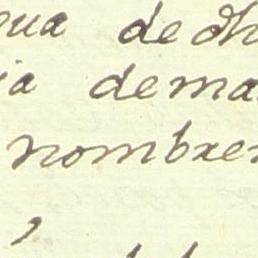 gua de dh
ia dema
nombre
,